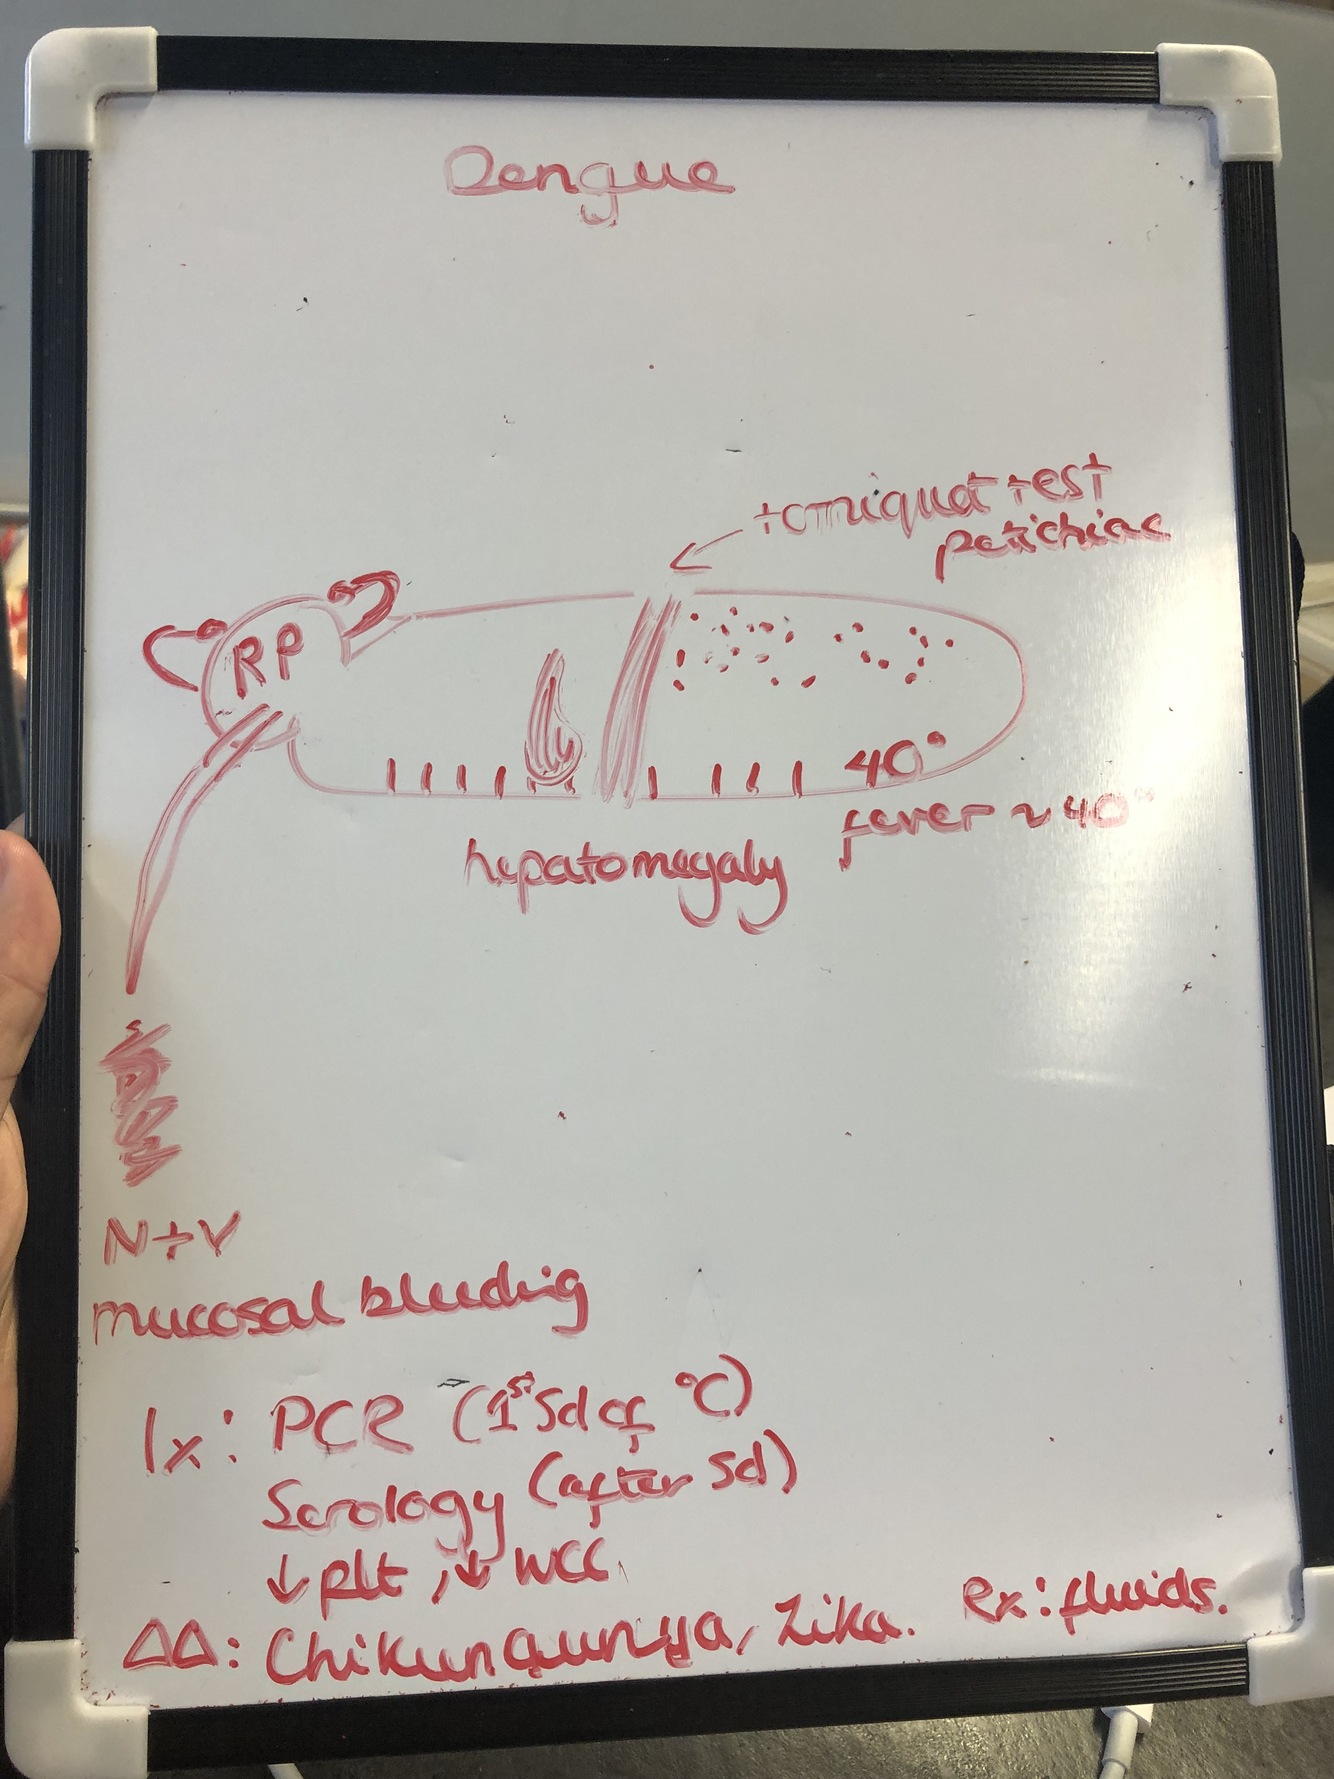 Dengue
torniquet test
petichiae
RP
40°
fever ~ 40°
hepatomegaly
N+V
mucosal bleeding
Ix: PCR (1st 5d of °C)
Serology (after 5d)
↓ plt, ↓ WCC
ΔΔ: Chikungunya, Zika. Rx: fluids.